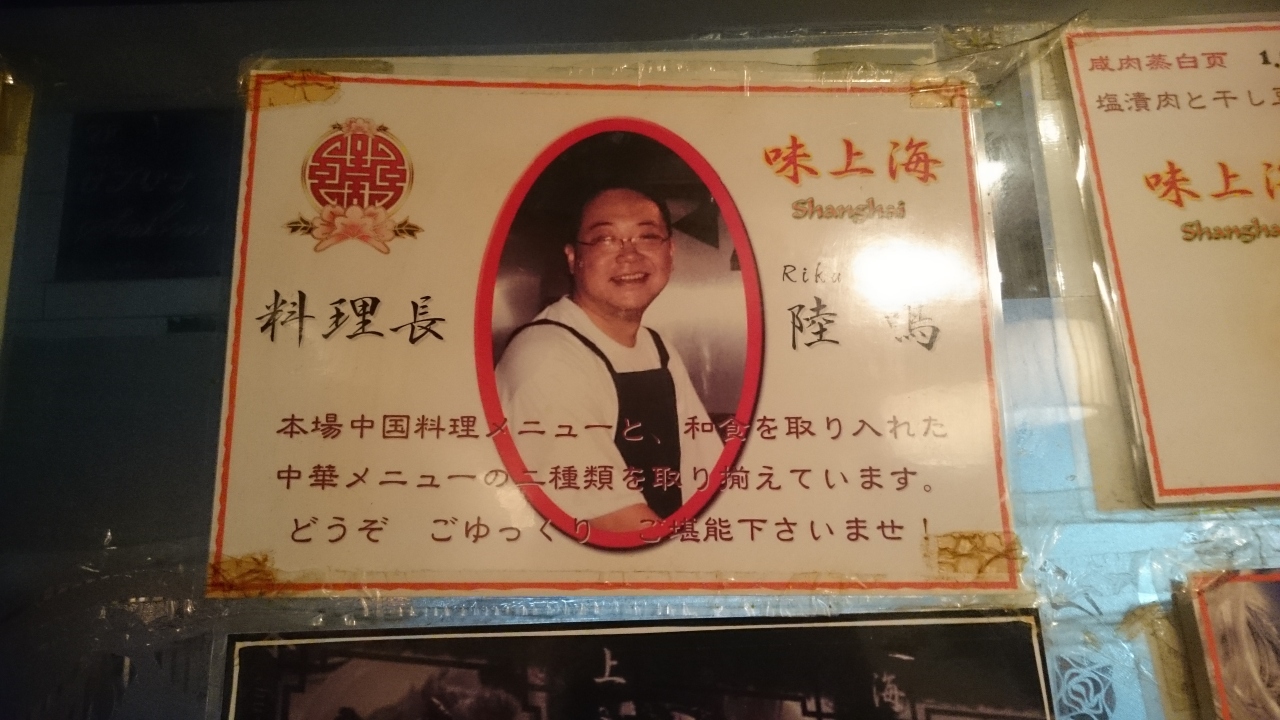 味上海
Shanghai
Riku
料理長
陸
本場中国料理メニューと、和食を取り入れた
中華メニューの二種類を取り揃えています。
どうぞ ごゆっくり ご堪能下さいませ！
咸肉蒸白页 1.
塩漬肉と干し豆
味上海
Shangha
上
海